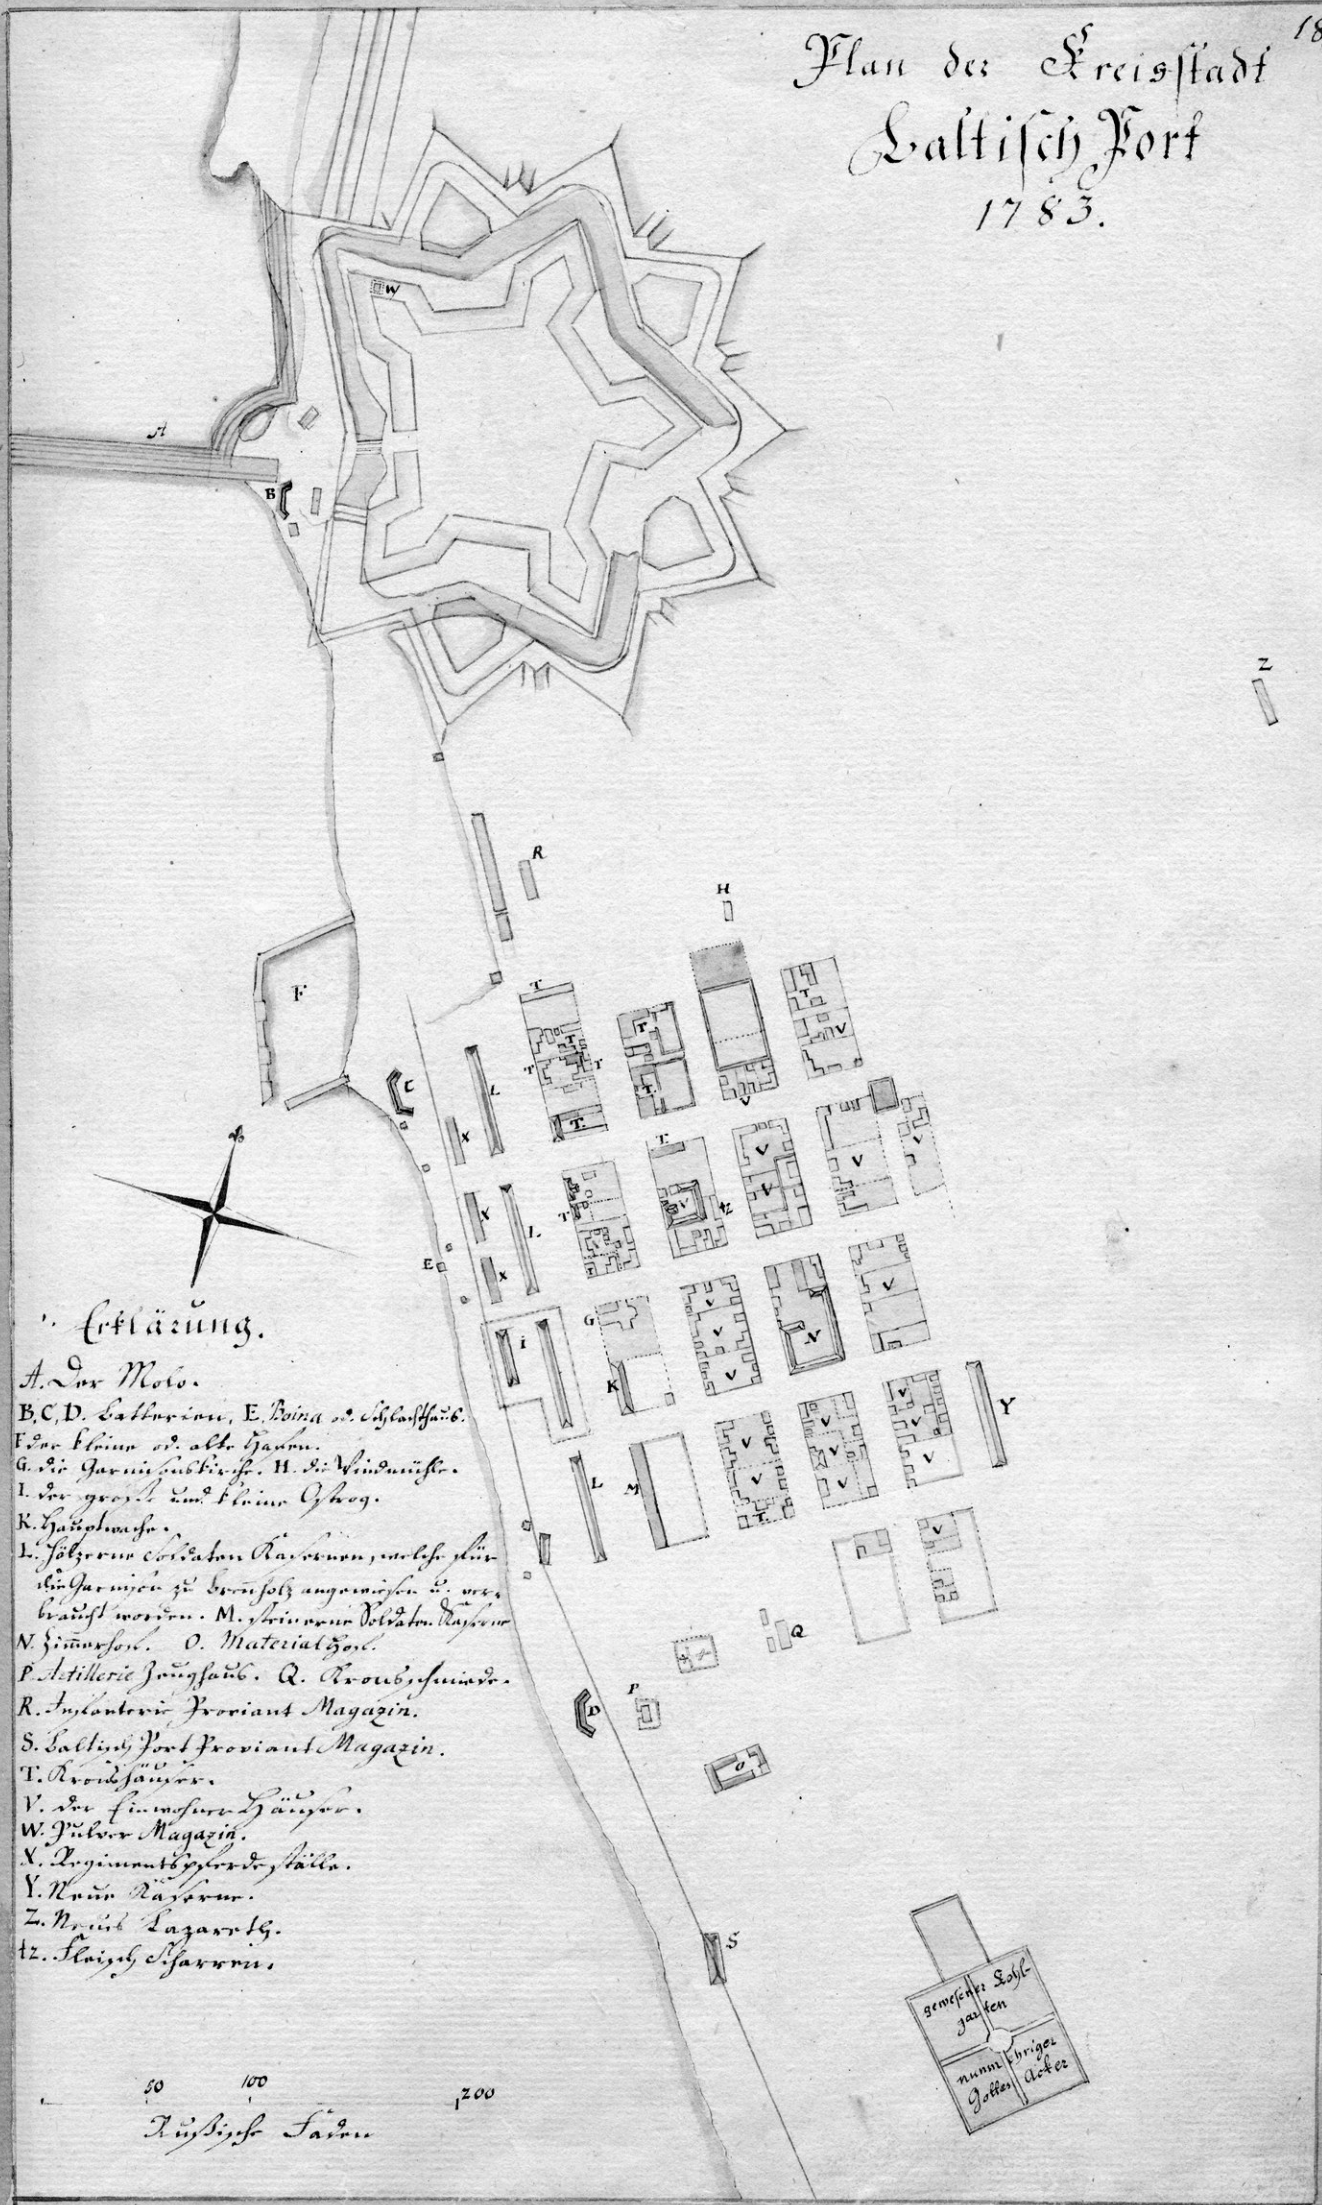 18
Plan der Kreisstadt
Baltisch Port
1783.
A
W
B
Z
R
H
F
C
E
G
I
K
L
M
N
Y
X
T
V
tz
Q
P
D
O
S
gewesener Kohl-
garten
nunmehriger
Gottes Acker
Erklärung.
A. Der Molo.
B, C, D. Batterien. E. Boina od. Schlachthaus.
F der kleine od. alte Hafen.
G. die Garnisonskirche. H. die Windmühle.
I. der große und kleine Ostrog.
K. Hauptwache.
L. Hölzerne Soldaten Kasernen, welche für
die Garnison zu Brennholz angewiesen u. ver-
braucht worden. M. steinerne Soldaten Kaserne
N. Zimmerhof. O. Material Hof.
P. Artillerie Zeughaus. Q. Kronsschmiede.
R. Infanterie Proviant Magazin.
S. Baltisch Port Proviant Magazin.
T. Kronshäuser.
V. der Einwohner Häuser.
W. Pulver Magazin.
X. Regimentspferdeställe.
Y. Neue Kaserne.
Z. Neues Lazareth.
tz. Fleisch Scharren.
50 100 200
Rußische Faden